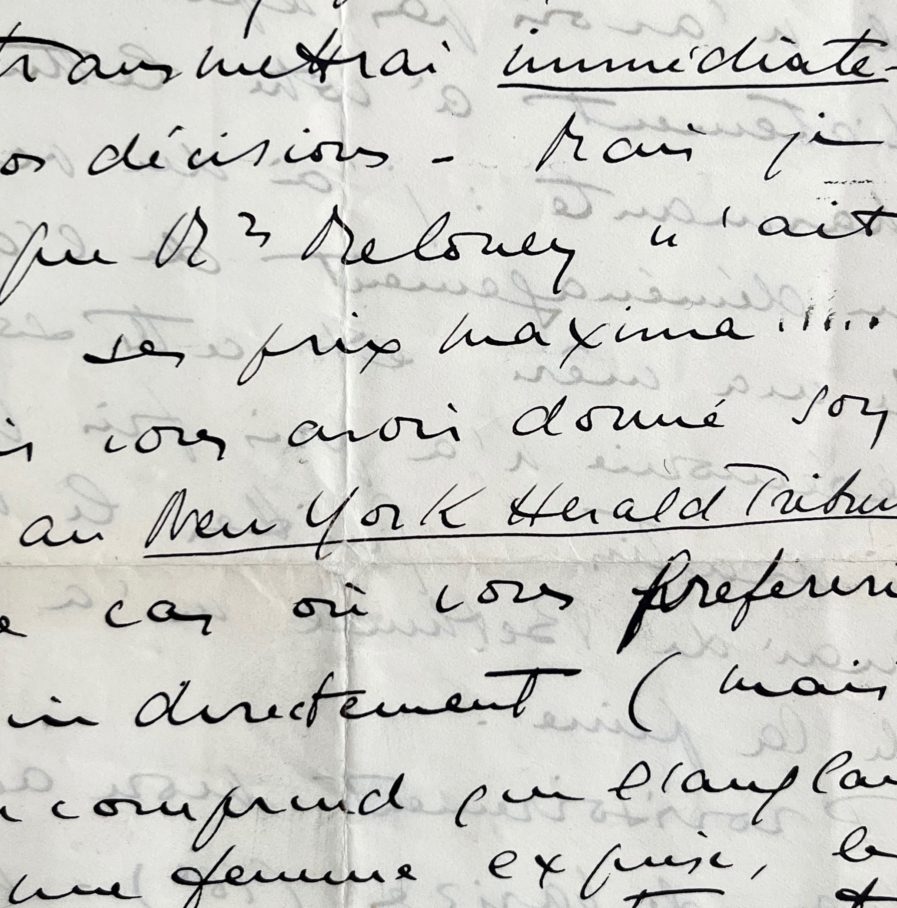 transmettrai immédiate-
os décisions - Mais je
que Mrs Meloney n'ait
ses prix maxima.....
is vous avoir donné son
au New York Herald Tribun
e cas où vous préféreri
directement (mais
comprend que l'anglai
une femme exquise, le